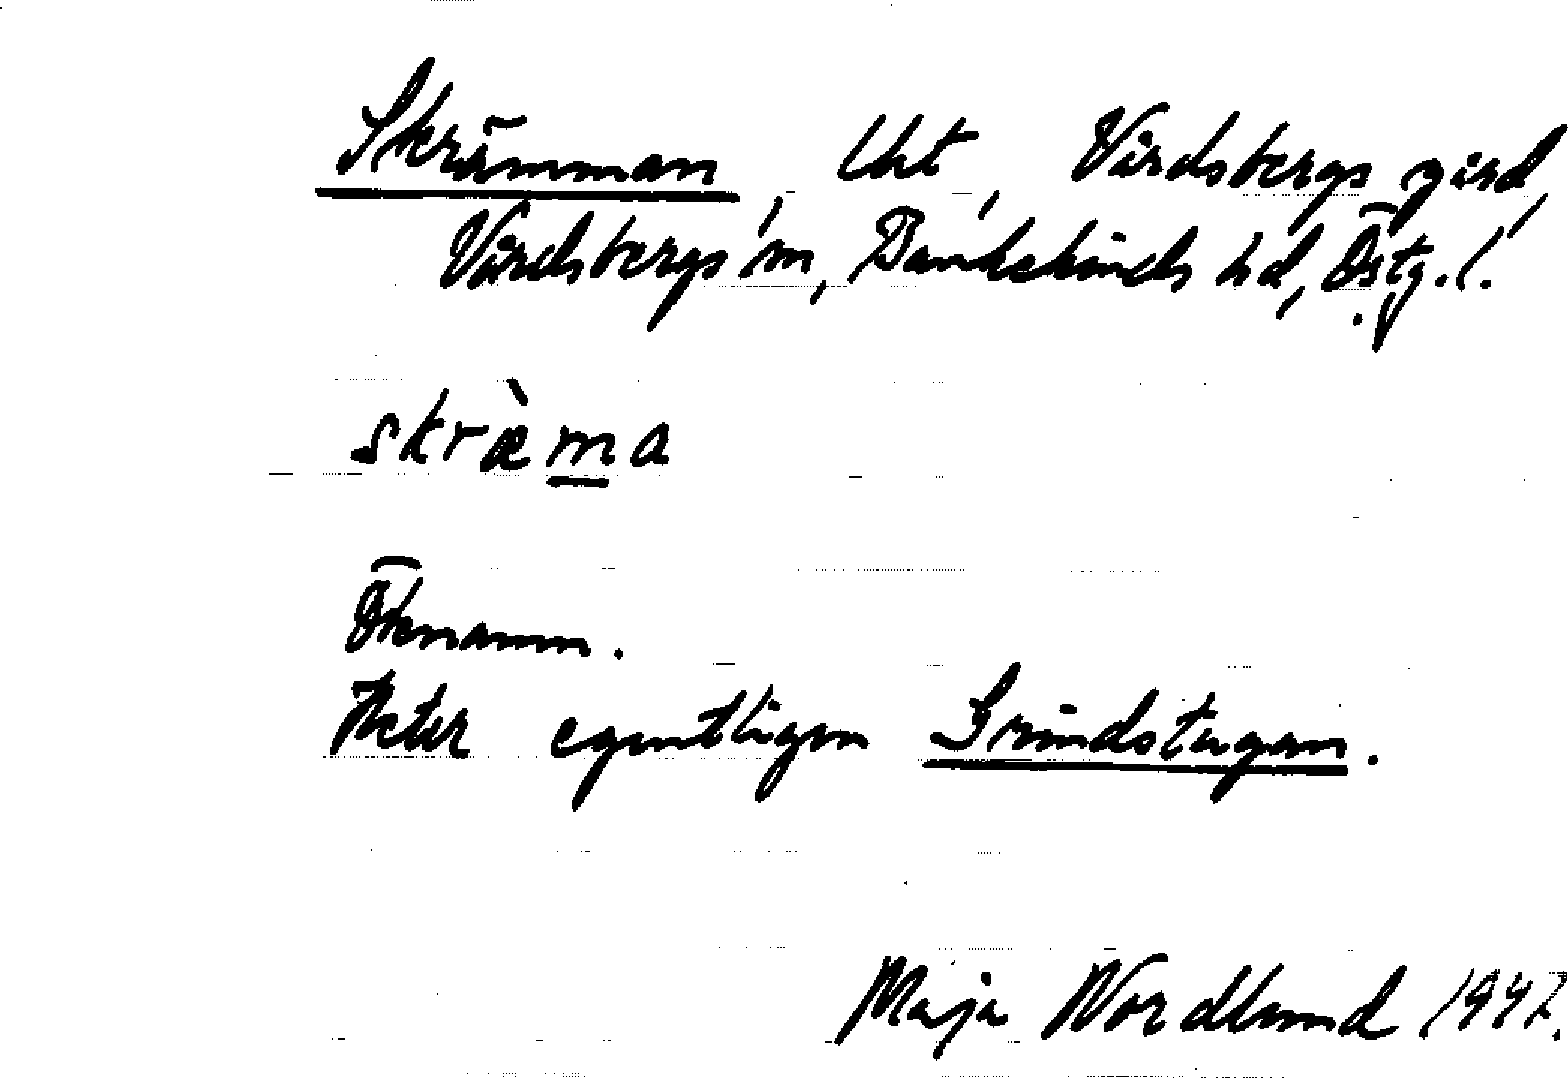 Skrämman, lht, Vårdsbergs gård,
Vårdsbergs sn, Bankekinds hd, Östg. l.
skræ̀ma
Öknamn.
Heter egentligen Grindstugan.
Maja Nordlund 1947.